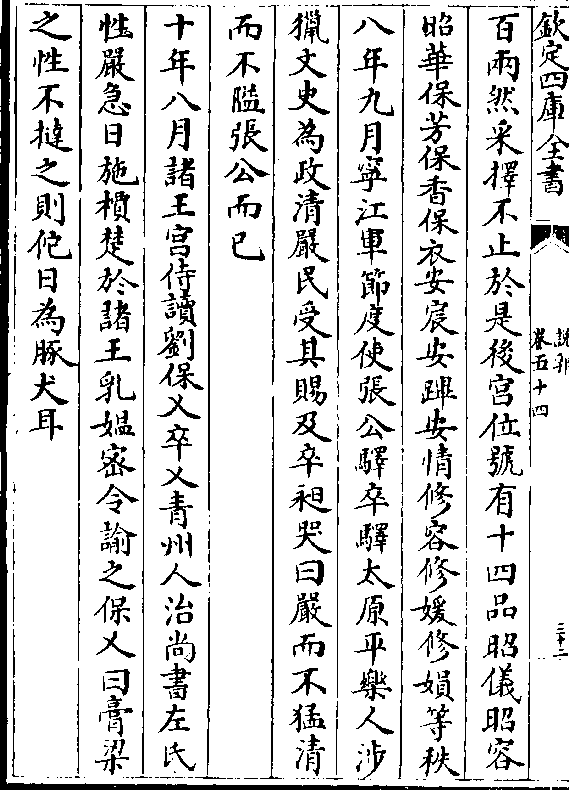 欽定四庫全書
說郛
卷五十四
三十二
百兩然采擇不止於是後宮位號有十四品昭儀昭容
昭華保芳保香保衣安宸安蹕安情修容修媛修娟等秩
八年九月寧江軍節度使張公驛卒驛太原平樂人涉
獵文史為政清嚴民受其賜及卒昶哭曰嚴而不猛清
而不隘張公而已
十年八月諸王宮侍讀劉保乂卒乂青州人治尚書左氏
性嚴急日施檟楚於諸王乳媪宻令諭之保乂曰膏梁
之性不撻之則他日為豚犬耳